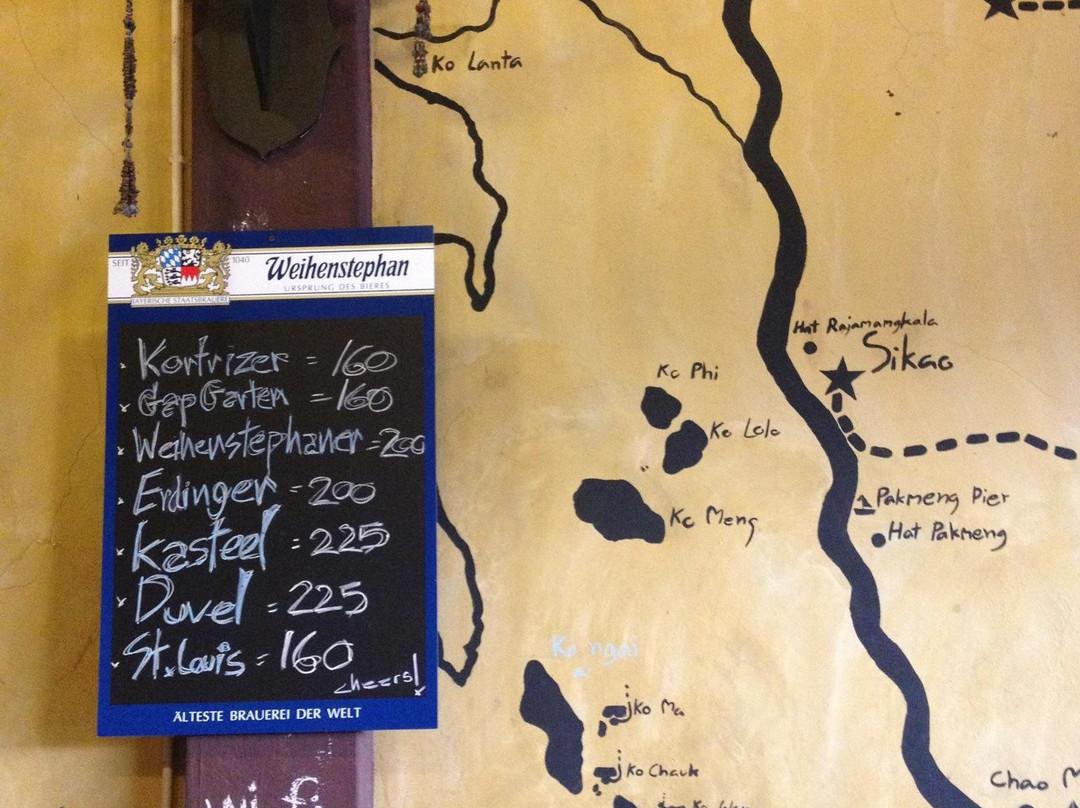 SEIT 1040
Weihenstephan
URSPRUNG DES BIERES
BAYERISCHE STAATSBRAUEREI
Kortrizer = 160
Gap Garten = 160
Weihenstephaner = 200
Erdinger = 200
Kasteel = 225
Duvel = 225
St. Louis = 160
cheers!
ÄLTESTE BRAUEREI DER WELT
wi fi
Ko Lanta
Hat Rajamangkala
Sikao
Ko Phi
Ko Lolo
Ko Meng
Pakmeng Pier
Hat Pakmeng
Ko ngai
Ko Ma
Ko Chauk
Chao M